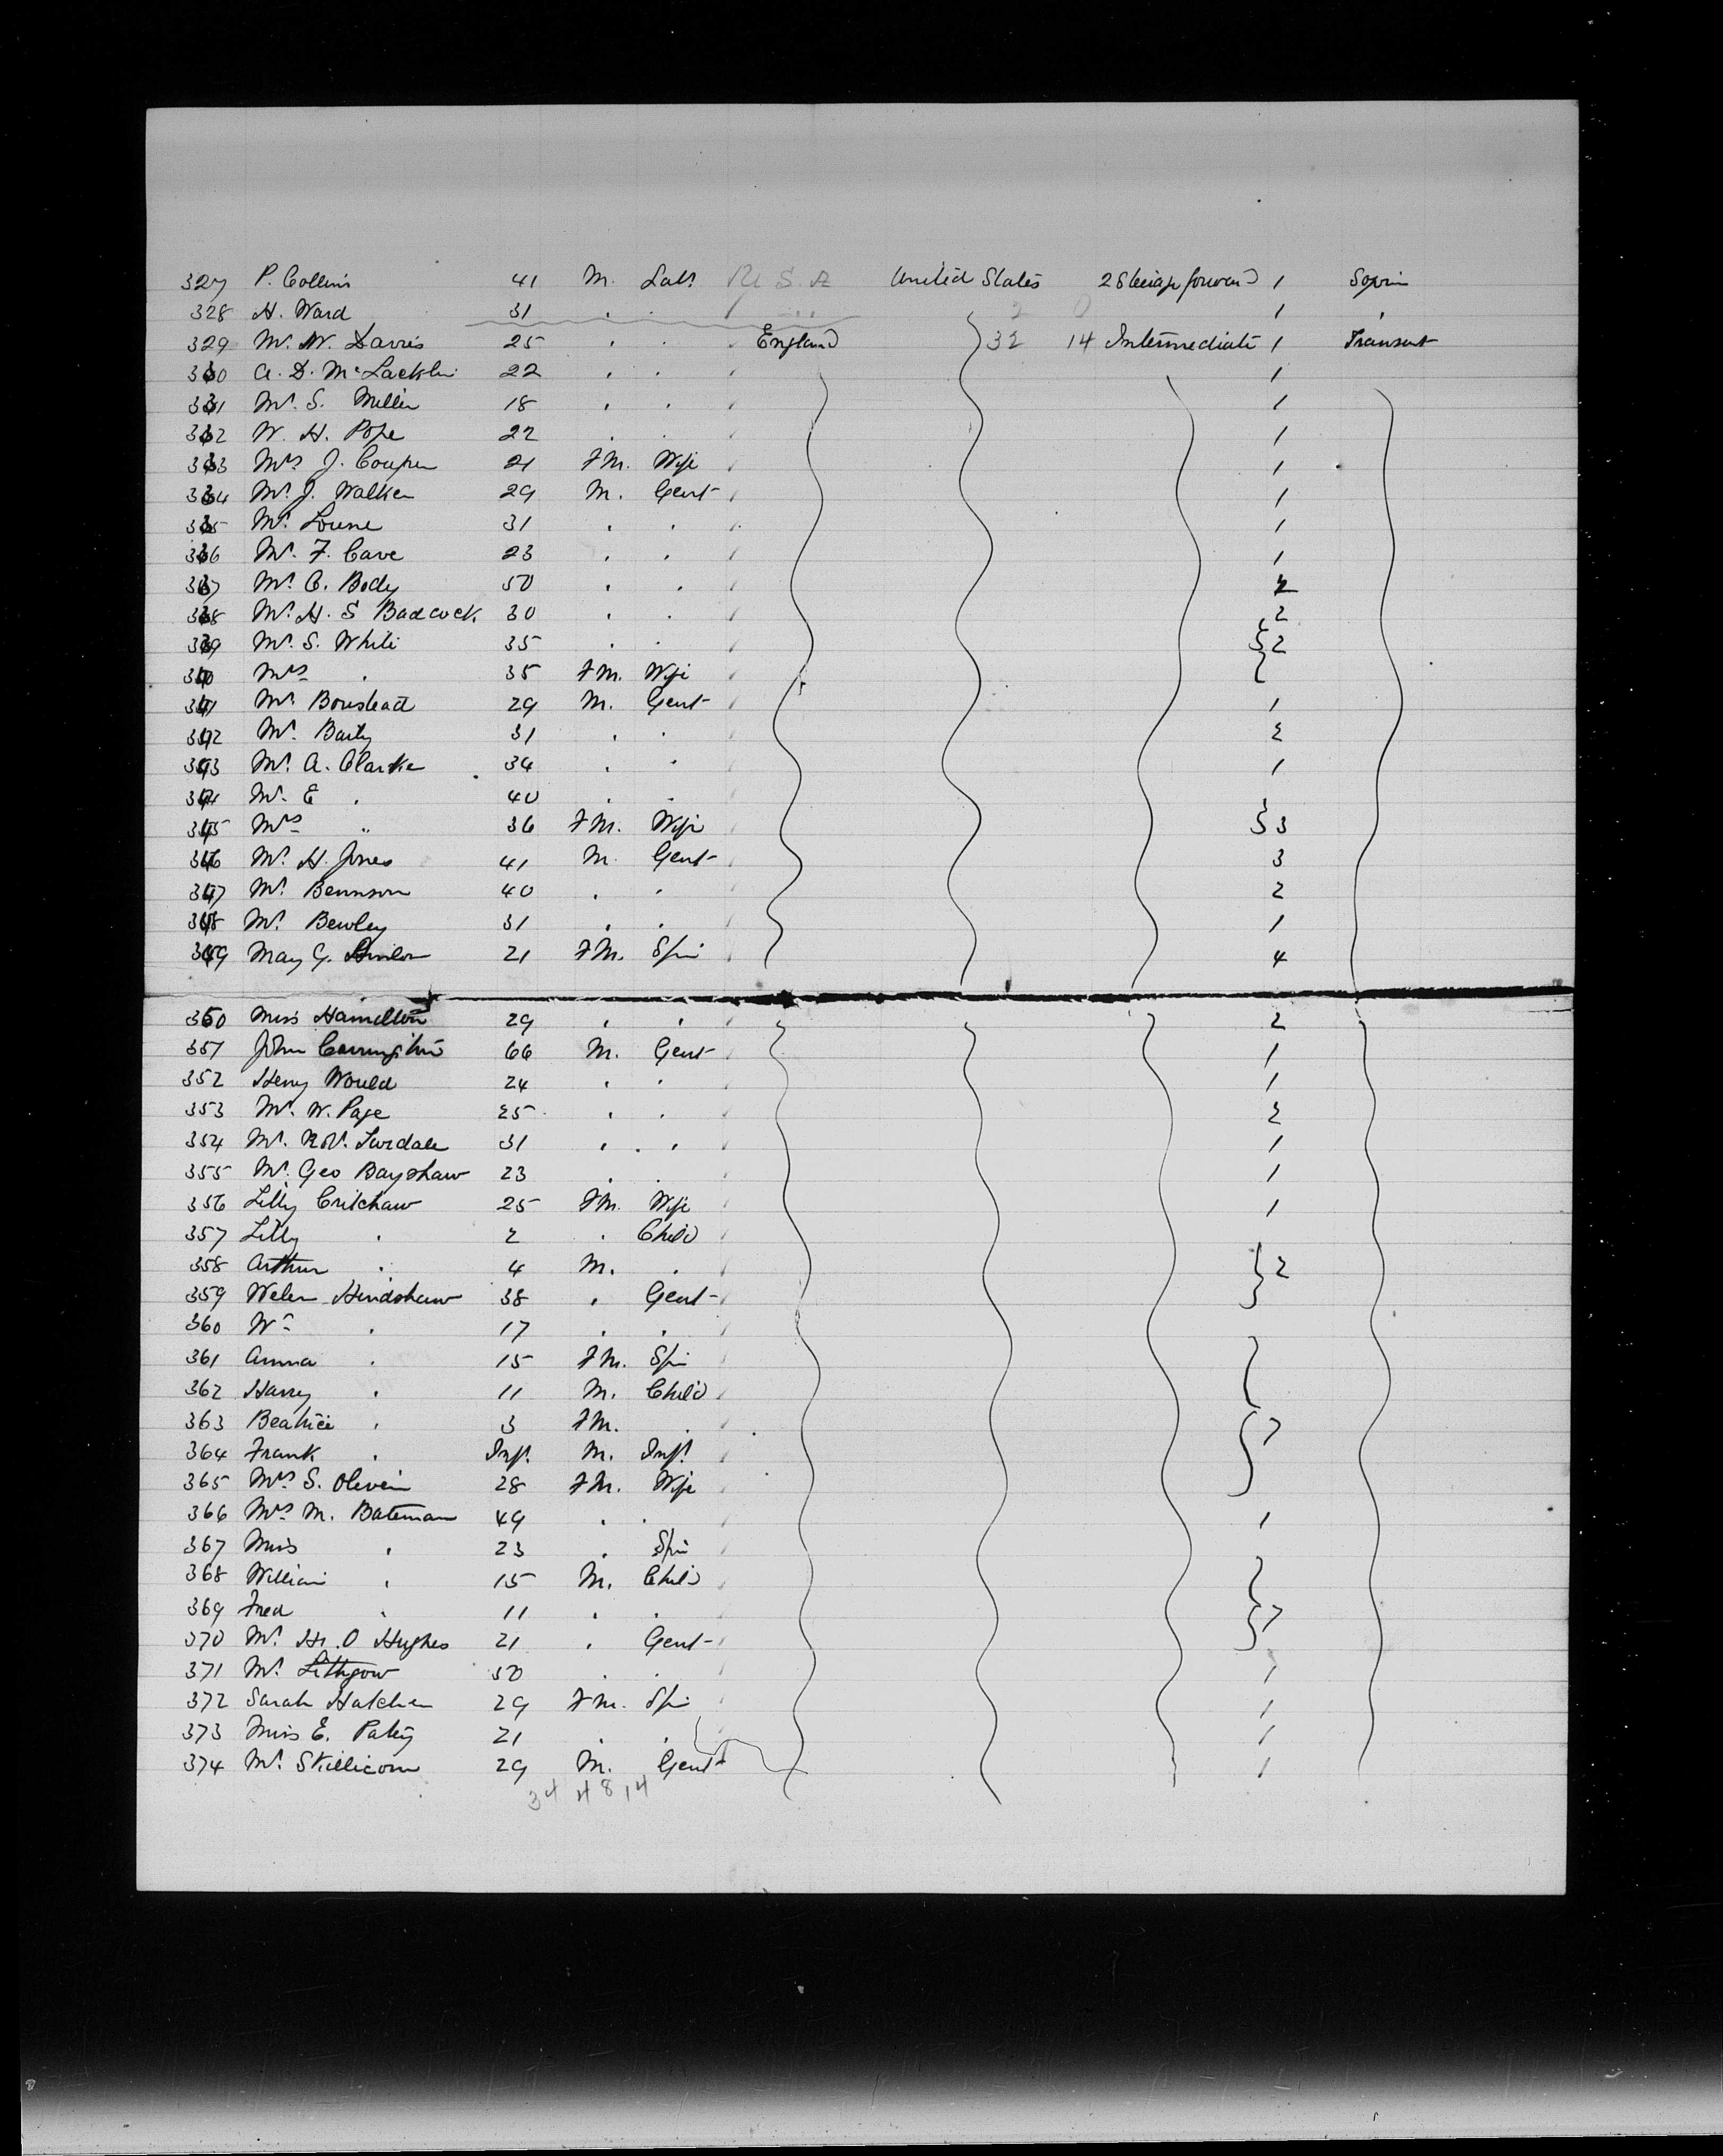 327 P. Collins 41 M. Labr U.S.A United States 2 Steerage forward 1 Sojourn
328 H. Ward 31 . . 1 .
329 Mr. W. Davies 25 . . England 32 14 Intermediate 1 Transit
330 A. D. McLacklin 22 . . 1
331 Mr. S. Miller 18 . . 1
332 W. H. Pope 22 . . 1
333 Mrs J. Couper 21 FM. Wife 1
334 Mr. J. Walker 29 M. Gent 1
335 Mr. 31 . . 1
336 Mr. F. Cave 23 . . 1
337 Mr. C. Body 50 . . 2
338 Mr. H. S Badcock 30 . . 2
339 Mr. S. White 35 . . 2
340 Mrs . 35 FM. Wife
341 Mr. Boustead 29 M. Gent 1
342 Mr. Baity 31 . . 2
343 Mr. A. Clarke 34 . . 1
344 Mr. E . 40 . .
345 Mrs " 36 FM. Wife 3
346 Mr. H. Jones 41 M. Gent 3
347 Mr. Bennson 40 . . 2
348 Mr. Bewley 31 . . 1
349 May G. 21 FM. Spin 4
350 Miss Hamilton 29 . . 2
351 John Carrington 66 M. Gent 1
352 Henry Would 24 . . 1
353 Mr. W. Page 25 . . 2
354 Mr. 31 . . 1
355 Mr. Geo Bayshaw 23 . . 1
356 Lilly Critchaw 25 FM. Wife 1
357 Lilly . 2 . Child
358 Arthur . 4 M. . 2
359 Hindshaw 38 . Gent
360 Wm . 17 . .
361 Anna . 15 FM. Spin
362 Harry . 11 M. Child
363 Beatrice . 3 FM. . 7
364 Frank . Inft. M. Inft.
365 Mrs S. Olivein 28 FM. Wife
366 Mrs M. Bateman 49 . . 1
367 Miss . 23 . Spin
368 William . 15 M. Child
369 Fred . 11 . . 7
370 Mr. H. O Hughes 21 . Gent
371 Mr. Lithgow 50 . . 1
372 Sarah Hatcher 29 FM. Spin 1
373 Miss E. Patey 21 . . 1
374 Mr. Skillicorn 29 M. Gent 1
34 4 8 14